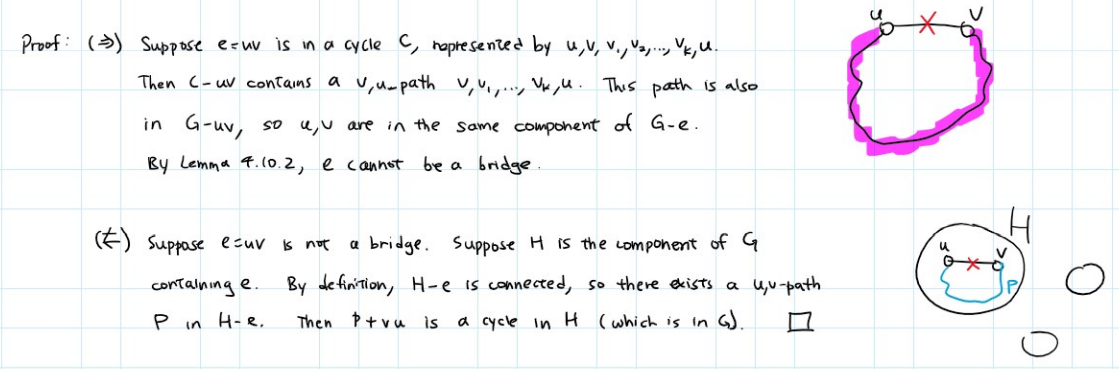 Proof: (⇒) Suppose e=uv is in a cycle C, represented by u,v,v₁,v₂,...,vₖ,u.
Then C-uv contains a v,u-path v,v₁,...,vₖ,u. This path is also
in G-uv, so u,v are in the same component of G-e.
By Lemma 4.10.2, e cannot be a bridge.
u v
(⇐) Suppose e=uv is not a bridge. Suppose H is the component of G
containing e. By definition, H-e is connected, so there exists a u,v-path
P in H-e. Then P+vu is a cycle in H (which is in G). □
H
u v
P